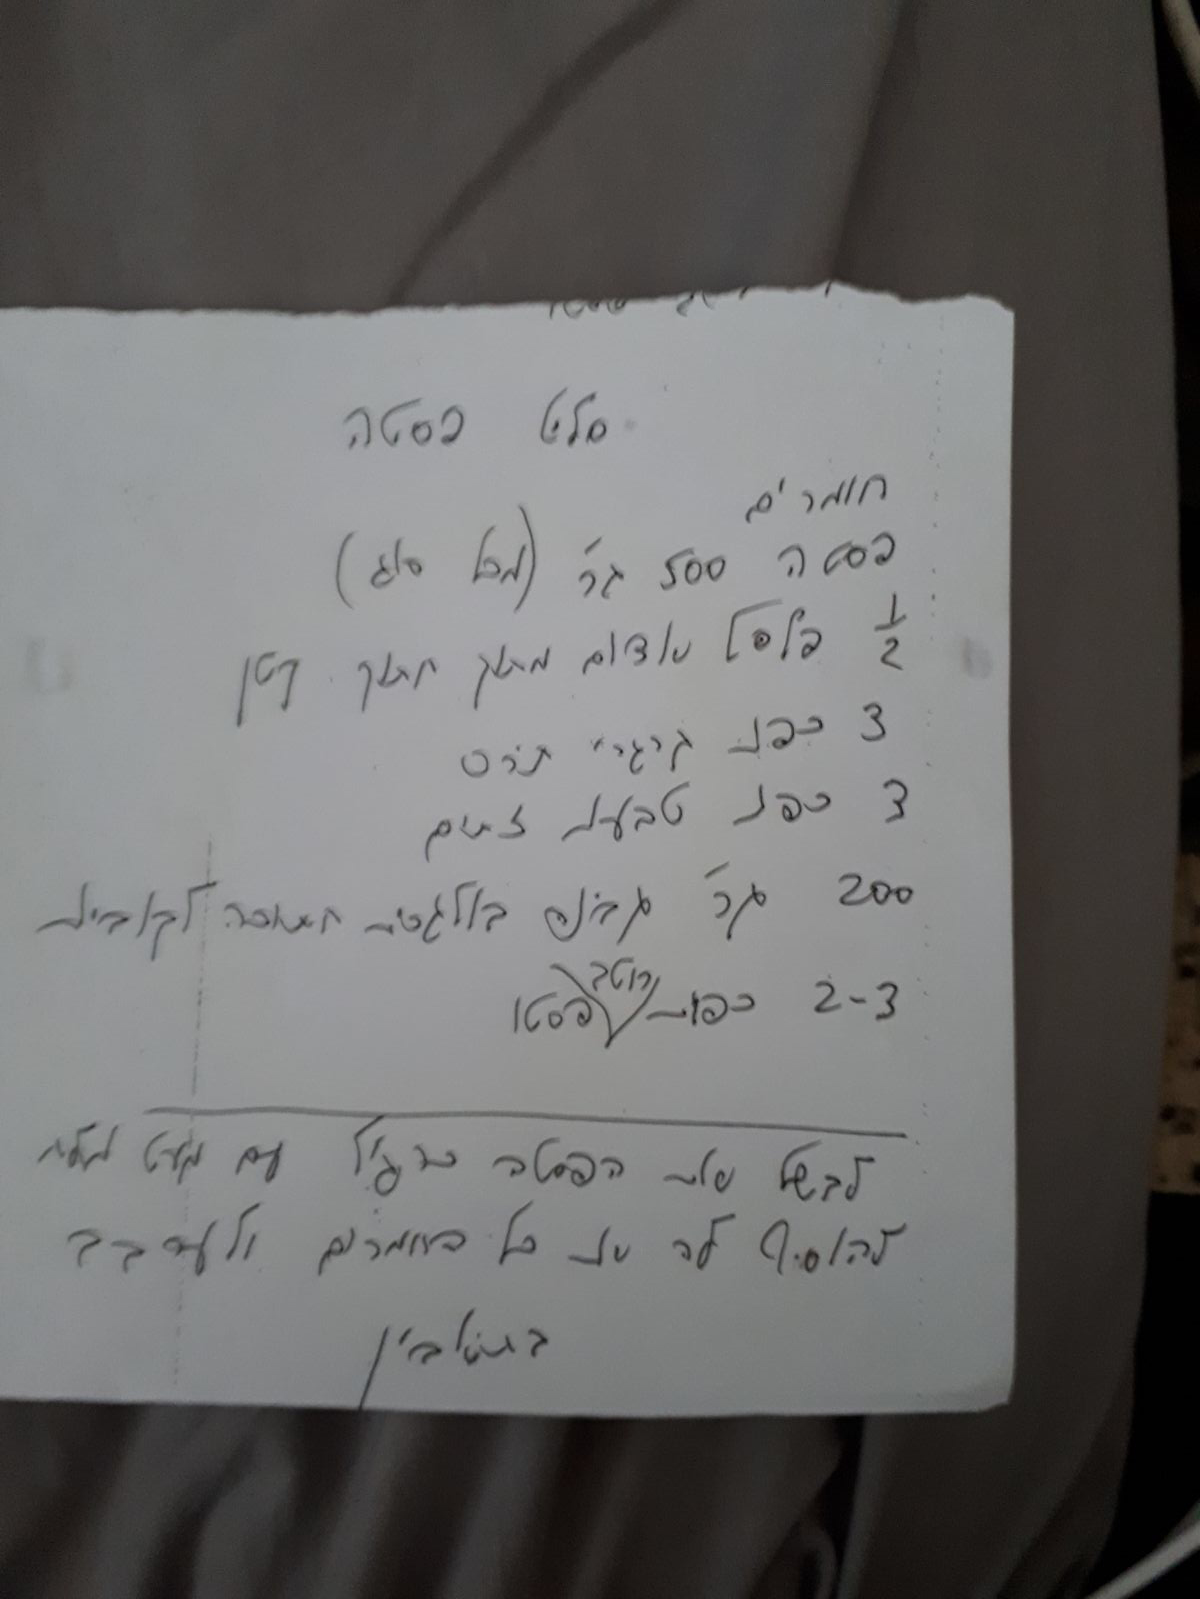 סלט פסטה
חומרים
פסטה 500 גר' (מכל סוג)
1/2 פלפל אדום מתוק חתוך קטן
3 כפות גרגרי תירס
3 כפות טבעות זיתים
200 גר' גבינה בולגרית חתוכה לקוביות
2-3 כפות רוטב פסטו
לבשל את הפסטה כרגיל עם מעט מלח
להוסיף לה את כל החומרים ולערבב
בתיאבון